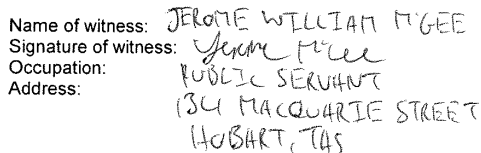 Name of witness: JEROME WILLIAM McGEE
Signature of witness: Jerome McGee
Occupation: PUBLIC SERVANT
Address: 134 MACQUARIE STREET
HOBART, TAS